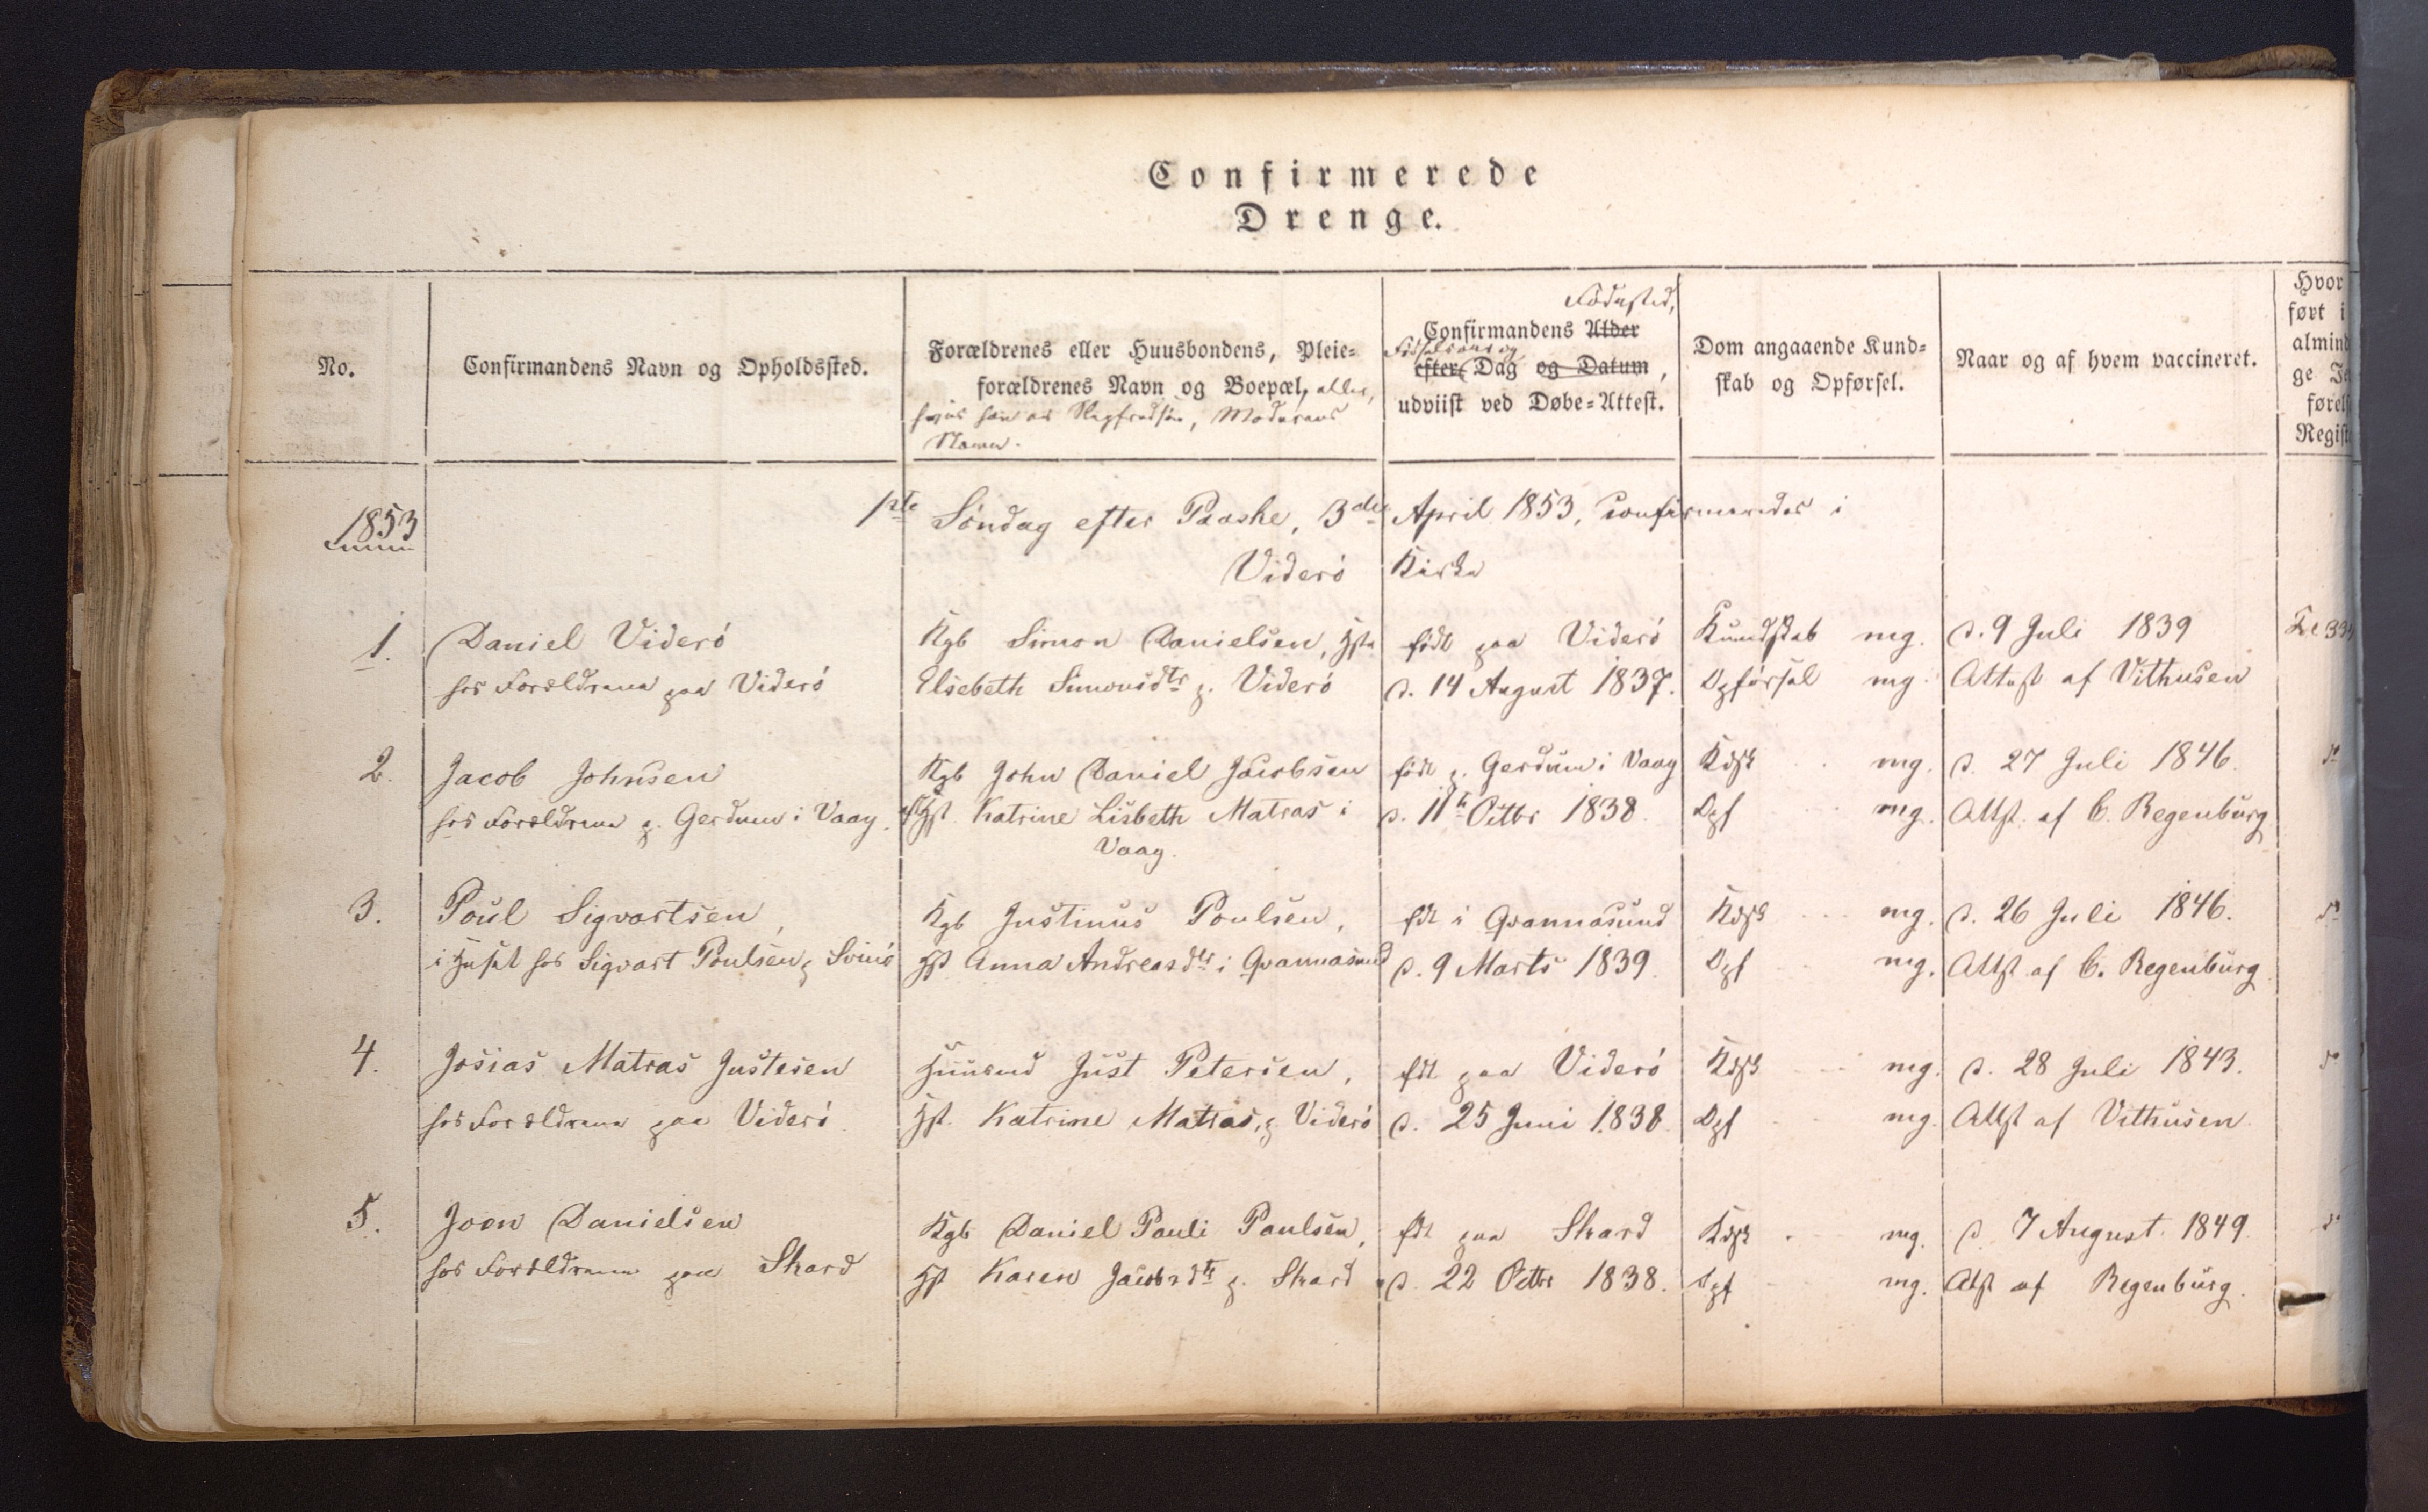 Confirmerede
Drenge.
No.
Confirmandens Navn og Opholdssted.
Forældrenes eller Huusbondens, Pleie=
forældrenes Navn og Boepæl, eller,
hvis han er Slegfredsön, Moderens
Navn.
Födested,
Confirmandens Alder
Födselsaar og
efter Dag og Datum,
udviist ved Døbe=Attest.
Dom angaaende Kund=
skab og Opførsel.
Naar og af hvem vaccineret.
Hvor
ført i
almind
ge Je
førel
Regist
1853
1ste Söndag efter Paaske, 3die April 1853, confirmeredes i
Viderö Kirke
1. Daniel Viderö
hos Forældrene paa Viderö
Kgb Simon Danielsen, Hst
Elsebeth Simonsdtr p. Viderö
födt paa Viderö
d. 14 August 1837.
Kundskab mg.
Opförsel mg.
d. 9 Juli 1839
Attest af Vithusen
2. Jacob Johnsen
hos Forældrene p. Gerdum i Vaag.
Kgb John Daniel Jacobsen
Hst. Katrine Lisbeth Matras i
Vaag.
födt p. Gerdum i Vaag
d. 11te Octbr 1838.
Kdsk mg.
Opf mg.
d. 27 Juli 1846.
Attst. af C. Regenburg
do
3. Poul Sigvartsen,
i Huset hos Sigvart Poulsen p Svinö
Kgb Justinus Poulsen,
Hst Anna Andreasdtr i Qvannasund
fdt i Qvannasund
d. 9 Marts 1839.
Kdsk mg.
Opf mg.
d. 26 Juli 1846.
Attst af C. Regenburg
do
4. Josias Matras Justesen
hos Forældrene paa Viderö.
Huusmd Just Petersen,
Hst. Katrine Matras, p Viderö
fdt paa Viderö
d. 25 Juni 1838.
Kdsk mg.
Opf mg.
d. 28 Juli 1843.
Attst af Vithusen.
do
5. Joen Danielsen
hos Forældrene paa Skard
Kgb Daniel Pauli Paulsen,
Hst Karen Jacobsdtr p. Skard
fdt paa Skard
d. 22 Octbr 1838.
Kdsk mg.
Opf mg.
d. 7 August. 1849.
Atst af Regenburg.
do